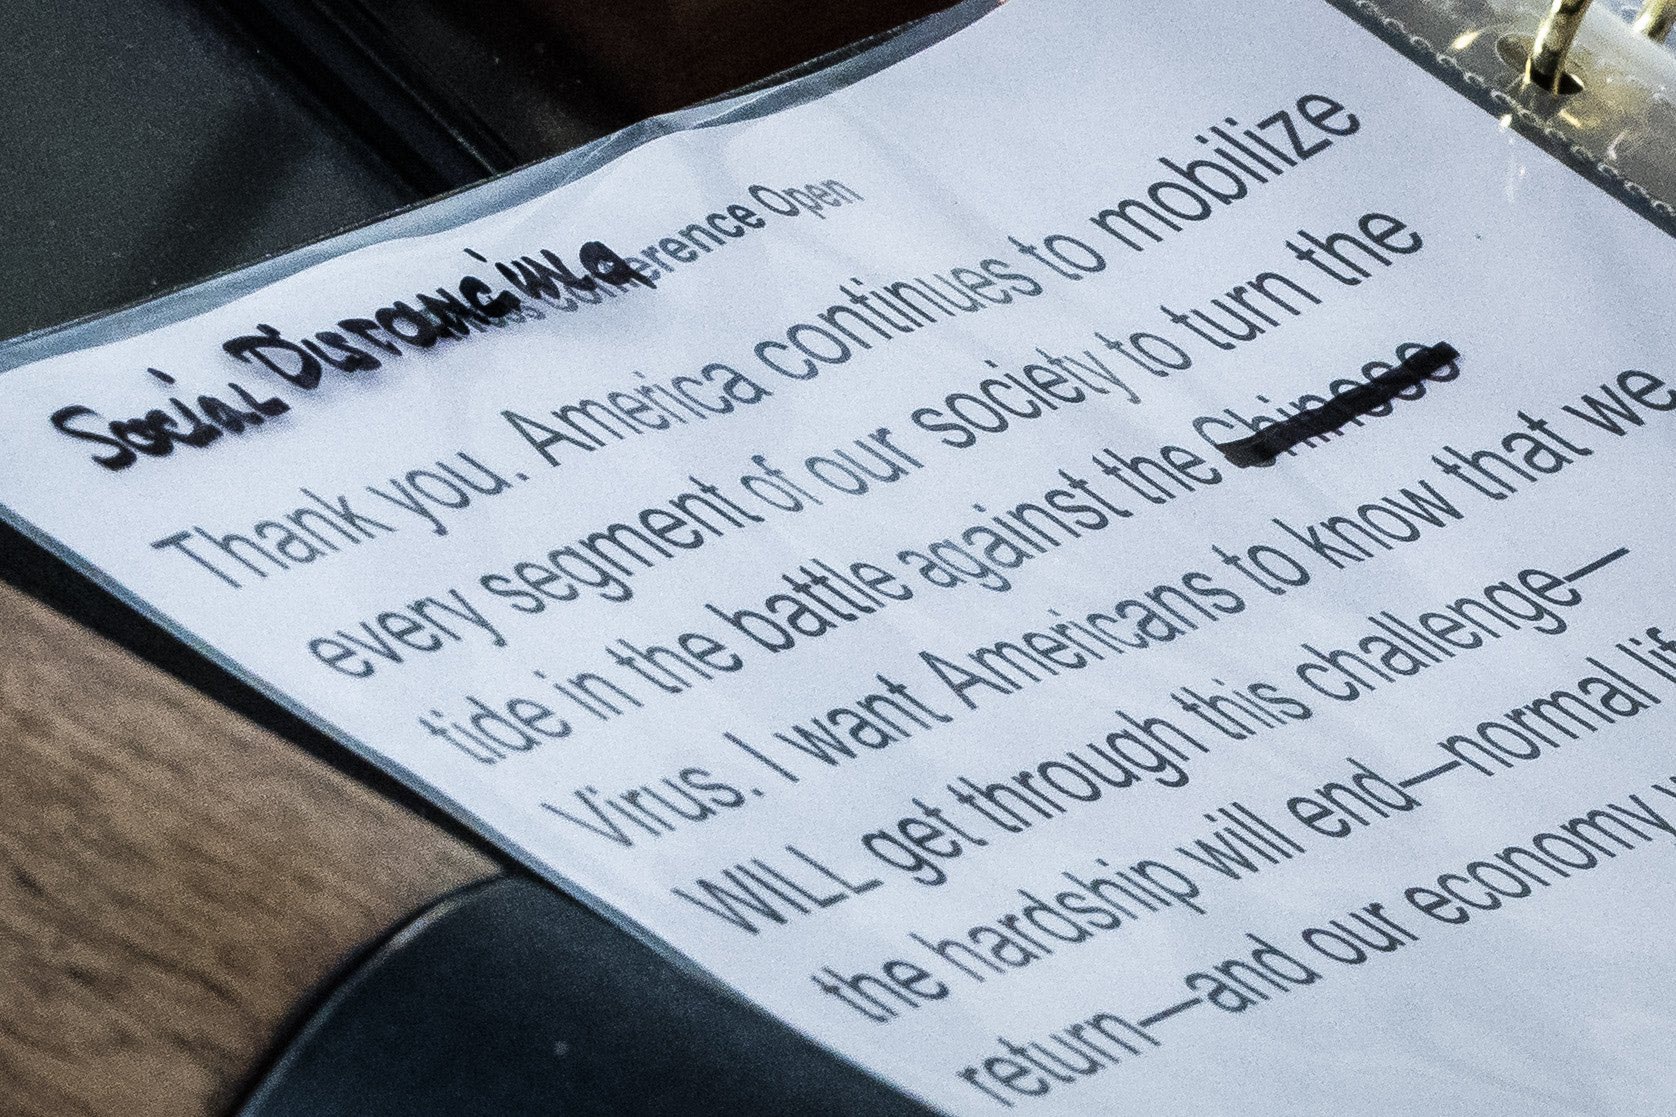 Social Distancing
Conference Open
Thank you. America continues to mobilize
every segment of our society to turn the
tide in the battle against the Chinese
Virus. I want Americans to know that we
WILL get through this challenge—
the hardship will end—normal
return—and our economy